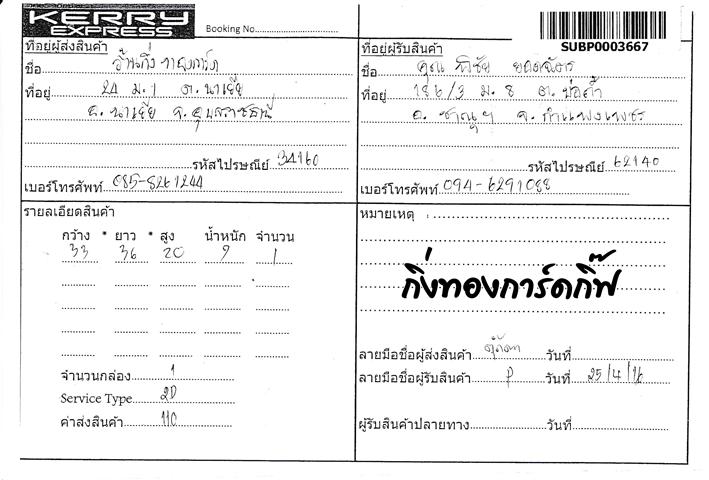 KERRY
EXPRESS
Booking No.
SUBP0003667
ที่อยู่ผู้ส่งสินค้า
ชื่อ
ที่อยู่ 24 ม.1 ต.นาเยีย
อ.นาเยีย จ.อุบลราชธานี
รหัสไปรษณีย์ 34160
เบอร์โทรศัพท์ 085-8261244
ที่อยู่ผู้รับสินค้า
ชื่อ คุณ
ที่อยู่ 186/3 ม.8 ต.บ่อถ้ำ
อ.ขาณุฯ จ.กำแพงเพชร
รหัสไปรษณีย์ 62140
เบอร์โทรศัพท์ 094-6291088
รายละเอียดสินค้า
กว้าง * ยาว * สูง น้ำหนัก จำนวน
33 36 20 9 1
จำนวนกล่อง 1
Service Type 2D
ค่าส่งสินค้า 110
หมายเหตุ :
กิ่งทองการ์ดกิ๊ฟ
ลายมือชื่อผู้ส่งสินค้า วันที่
ลายมือชื่อผู้รับสินค้า P วันที่ 25/4/16
ผู้รับสินค้าปลายทาง วันที่